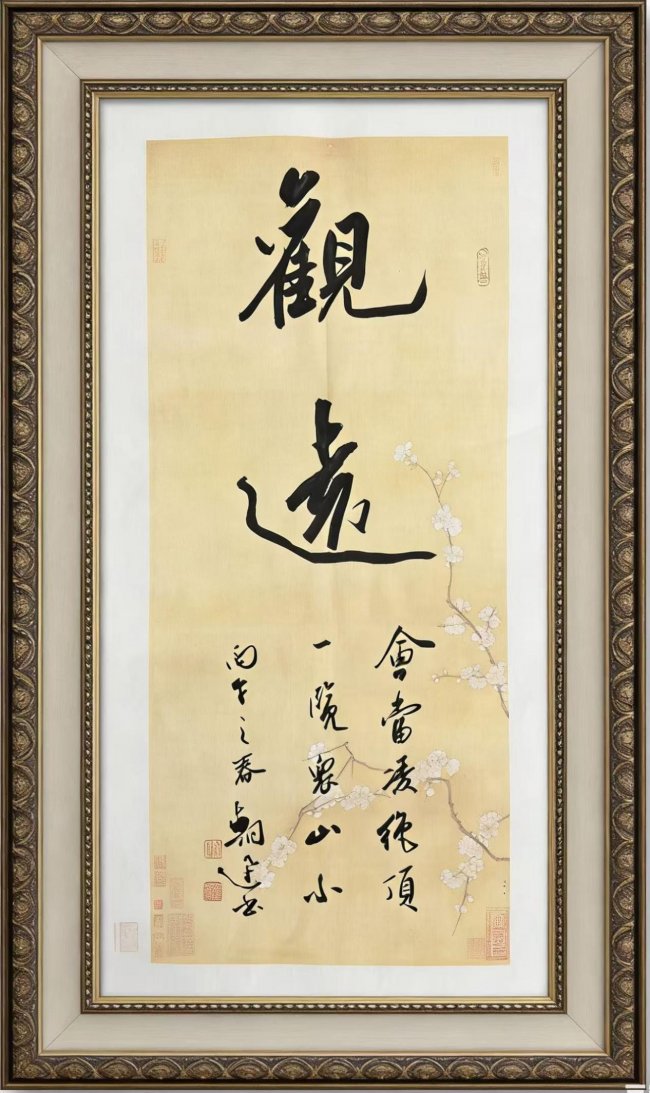 觀
遠
會當凌絶頂
一覽眾山小
丙午之春